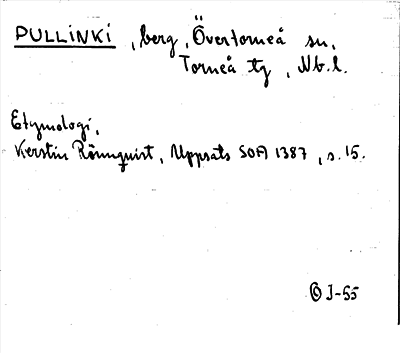 PULLINKI, berg, Övertorneå sn,
Torneå tg, Nb.l.
Etymologi,
Kerstin Rönnquist, Uppsats SOFI 1387, s. 15.
J-55